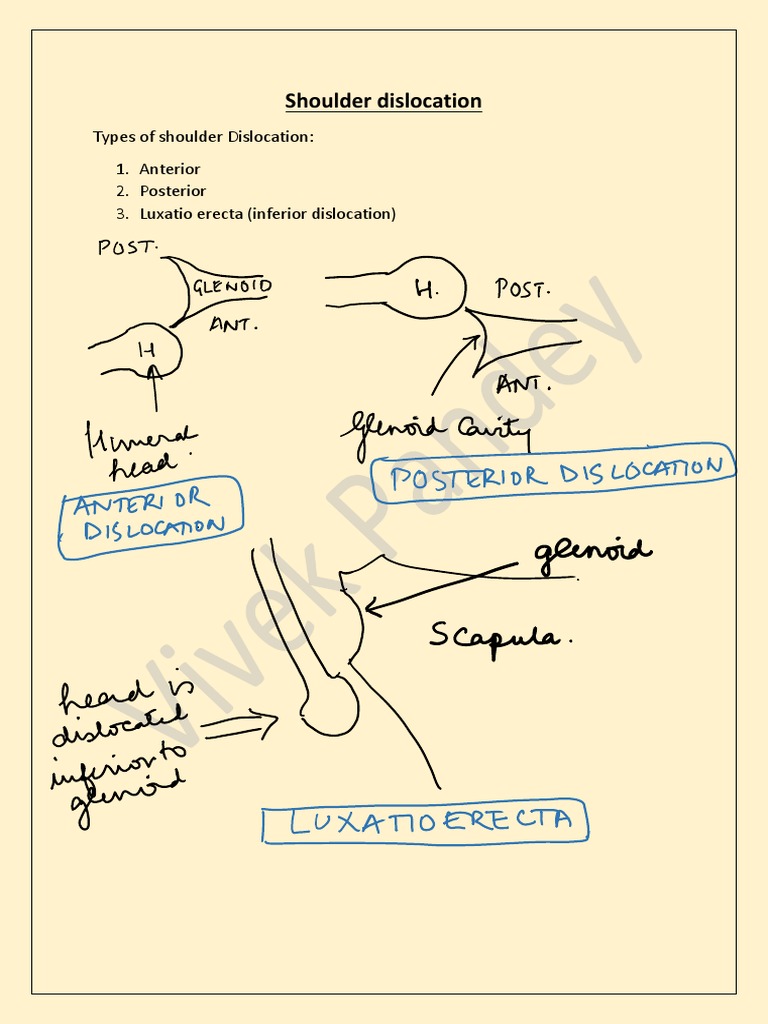 Shoulder dislocation
Types of shoulder Dislocation:
1. Anterior
2. Posterior
3. Luxatio erecta (inferior dislocation)
POST.
GLENOID
ANT.
H
Humeral
head.
ANTERIOR
DISLOCATION
H.
POST.
ANT.
Glenoid Cavity
POSTERIOR DISLOCATION
glenoid
Scapula.
head is
dislocated
inferior to
glenoid
LUXATIO ERECTA
Vivek Pandey